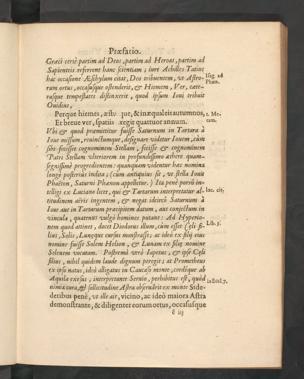 Præfatio.
Græci certè partim ad Deos, partim ad Heroas, partim ad
Sapienteis referrent hanc scientiam; iure Achilles Tatius
hac occasione Æschylum citat, Deo tribuentem, vt Astro-
rum ortus, occasusque ostenderit, & Hiemem, Ver, cæte-
rasque tempestates distinxerit, quod ipsum Ioui tribuit
Ouidius,
Isag. ad
Phæn.
Perque hiemes, æstusque, & inæqualeis autumnos,
Et breue ver, spatiis exegit quattuor annum.
1. Me-
tam.
Vbi & quod præmittitur fuisse Saturnum in Tartara à
Ioue missum, reuincerumque, designare videtur Iouem, cùm
sibi fecisset cognominem Stellam, fecisse & cognominem
Patri Stellam vlteriorem in profundissimo æthere quam-
segnissimè progredientem: quanquam videntur hæc nomina
longè posterius indita; (cùm antiquius sit, vt stella Iouis
Phaëton, Saturni Phænon appelletur.) Ita penè porrò in-
telligi ex Luciano licet, qui & Tartarum interpretatur al-
titudinem aëris ingentem, & negat idcircò Saturnum à
Ioue aut in Tartarum præcipitem datum, aut coniectum in
vincula, quatenus vulgò homines putant: Ad Hyperio-
nem quod attinet, docet Diodorus illum, cùm esset Cœli fi-
lius, Solis, Lunæque cursus monstrasse; ac ideò ex filiis eius
nomine fuisse Solem Helion, & Lunam ex filiæ nomine
Selenem vocatam. Postremò verò Iapetus, & ipse Cœli
filius, nihil quidem laude dignum peregit; at Prometheus
ex ipso natus, ideò alligatus in Caucaso monte, cordique ab
Aquila exesus; interpretante Seruio, perhibitus est, quòd
nimia cura, & sollicitudine Astra obseruârit ex monte Side-
deribus penè, vt ille ait, vicino, ac ideò maiora Astra
demonstrante, & diligenter eorum ortus, occasusque
loc. cit.
Lib. 5.
in Ecl. 7.
ẽ iij